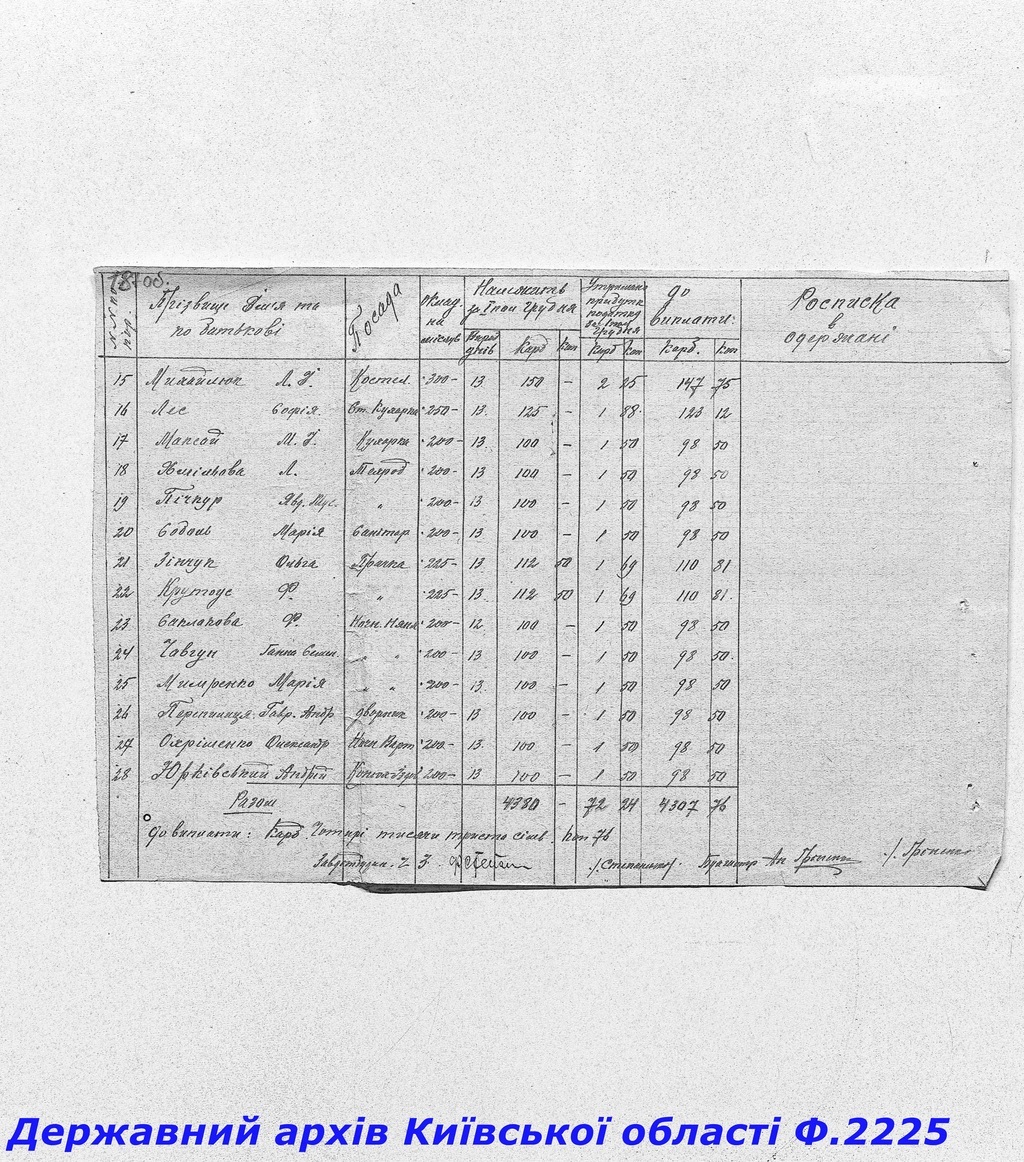 18об.
№№ пп
Прізвище ім'я та по батькові
Посада
Оклад на місяць
Належить за ІІ пол грудня
днів Карб Коп
Утримано прибутк. податку
грудня
Карб Коп
до виплати:
Карб. Коп
Росписка в одержані
15 Л. І. Костел. 300- 13 150 — 2 25 147 75
16 Лес Софія. Ст. Кухарка 250- 13. 125 — 1 88 123 12
17 М. І. Кухарка 200- 13. 100 — 1 50 98 50
18 Л. 200- 13 100 — 1 50 98 50
19 Пічкур „ 200- 13 100 — 1 50 98 50
20 Марія Санітар 200- 13. 100 — 1 50 98 50
21 Зінчук Ольга Прачка 225- 13 112 50 1 69 110 81
22 Крутоус Ф. „ 225- 13. 112 50 1 69 110 81.
23 Ф. Ночн. Няня 200- 12. 100 — 1 50 98 50
24 Чавгун Ганна Семен. „ „ 200- 13 100 — 1 50 98 50.
25 Марія „ „ 200- 13. 100 — 1 50 98 50
26 Гавр. Андр дворник 200- 13 100 — 1 50 98 50
27 Охріменко Олександр Ночн Варт 200- 13. 100 — 1 50 98 50
28 Юрківський Андрій 200- 13 100 — 1 50 98 50
Разом 4380 — 72 24 4307 76
До виплати: Карб. Чотирі тисячи триста сім. Коп 76
Державний архів Київської області Ф.2225